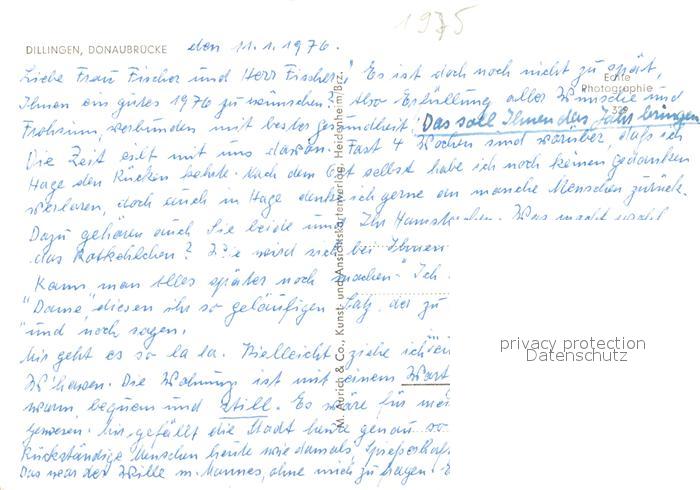 1975
DILLINGEN, DONAUBRÜCKE den 11.1.1976.
Liebe Frau Fischer und Herr Fischer! Es ist doch noch nicht zu spät,
Echte
Photographie
Ihnen ein gutes 1976 zu wünschen? Also Erfüllung aller Wünsche und
Frohsinn, verbunden mit bester Gesundheit! Das soll Ihnen das Jahr bringen
Die Zeit eilt mit uns davon. Fast 4 Wochen sind vorüber, daß ich
Hage den Rücken kehrte. Nach dem Ort selbst habe ich noch keinen Gedanken
verloren, doch auch in Hage denke ich gerne an manche Menschen zurück.
Dazu gehören auch Sie beide und Ihr Hamst chen. Was macht wohl
das Rotkehlchen? Wie wird sich bei Ihnen
Kann man Alles später noch machen-" Ich
"Dame" diesen ihr so geläufigen Satz, der zu
"und noch sagen.
Mir geht es so la la. Vielleicht ziehe ich
W'hausen. Die Wohnung ist mit einem
warm, bequem und still. Es wäre für
gewesen. Mir gefällt die Stadt heute genau so
Rückständige Menschen heute wie damals,
Das war der Wille m. Mannes, ohne mich zu fragen.
M. Aurich & Co., Kunst- und Ansichtskartenverlag, Heidenheim/Brz.
privacy protection
Datenschutz